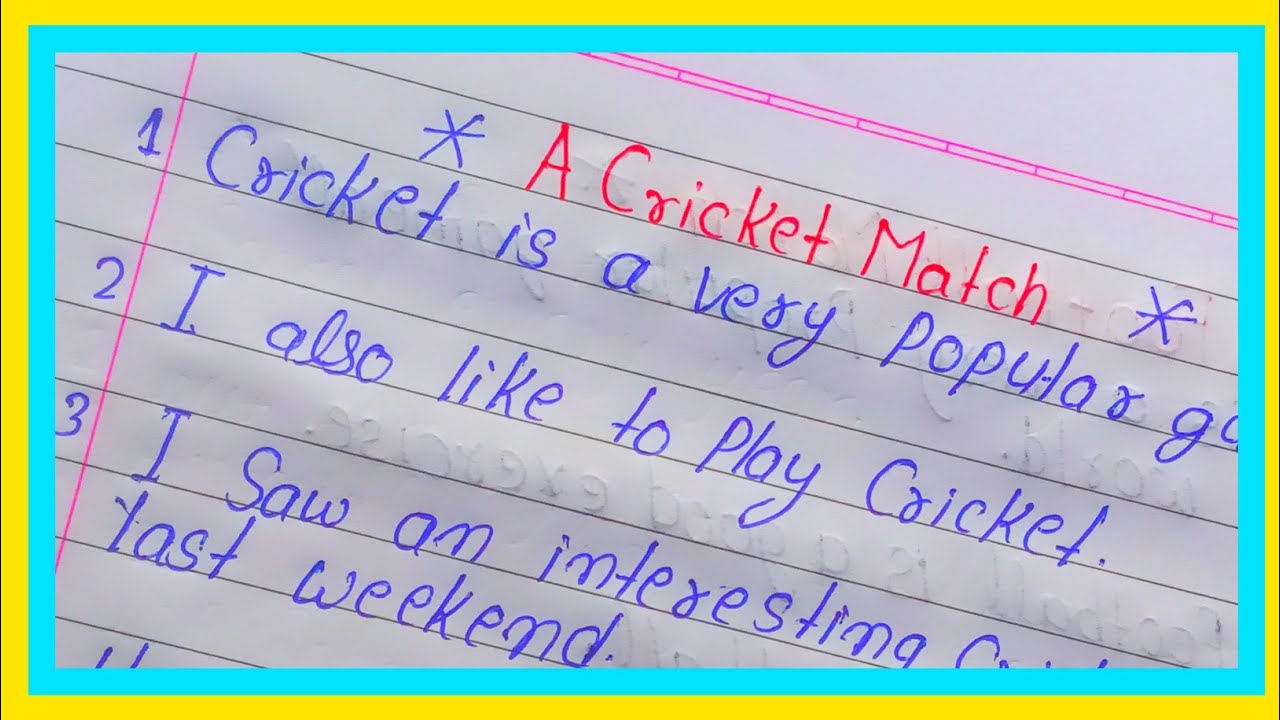 * A Cricket Match *
1 Cricket is a very Popular
2 I also like to Play Cricket.
3 I Saw an interesting
last weekend.